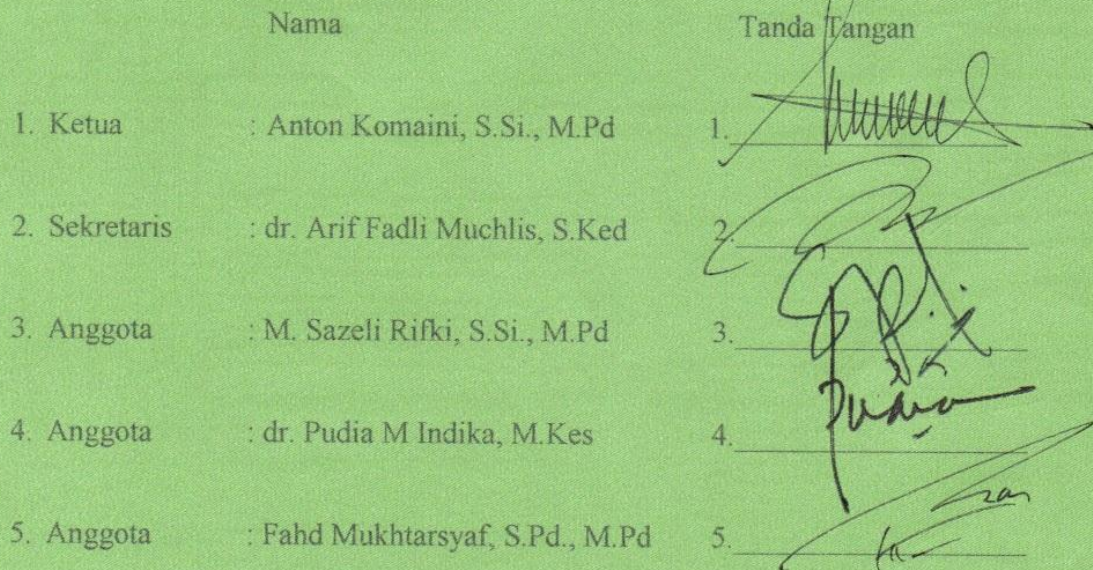 Nama Tanda Tangan
1. Ketua : Anton Komaini, S.Si., M.Pd 1.
2. Sekretaris : dr. Arif Fadli Muchlis, S.Ked 2.
3. Anggota : M. Sazeli Rifki, S.Si., M.Pd 3.
Pudia
4. Anggota : dr. Pudia M Indika, M.Kes 4.
5. Anggota : Fahd Mukhtarsyaf, S.Pd., M.Pd 5.